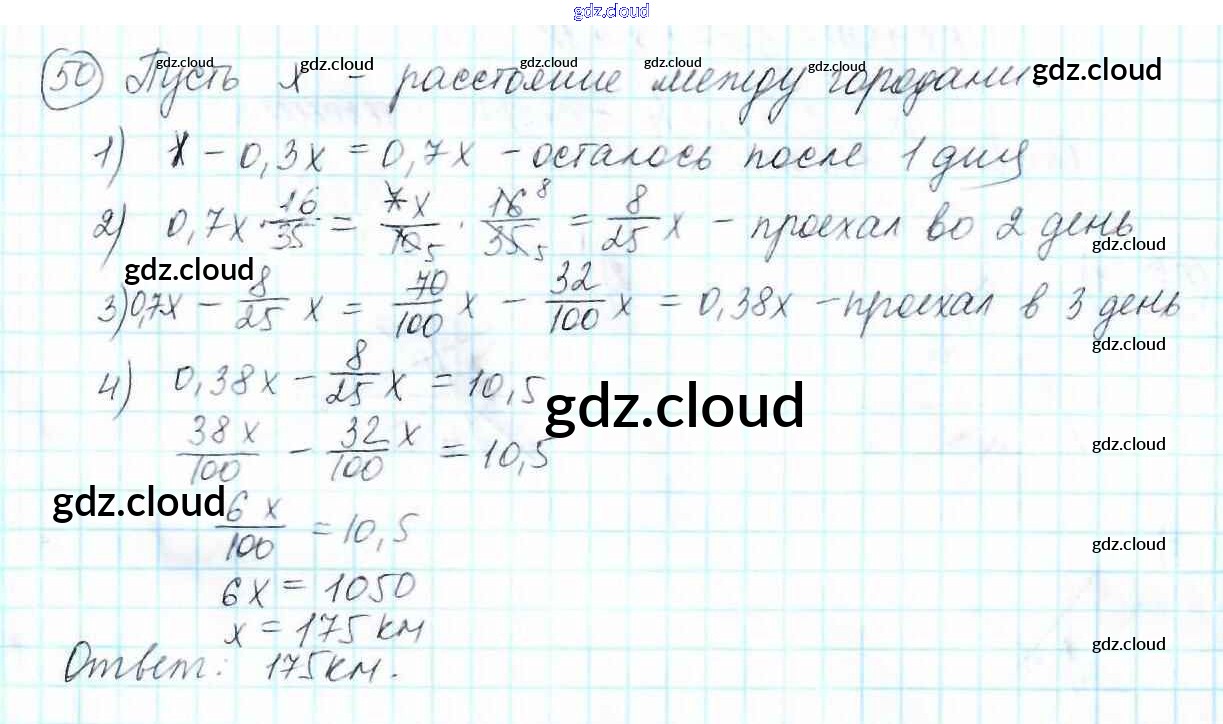 gdz.cloud
50 Пусть x - расстояние между городами
1) x - 0,3x = 0,7x - осталось после 1 дня
2) 0,7x · 16/35 = 7x/10 5 · 16 8/35 5 = 8/25 x - проехал во 2 день
3) 0,7x - 8/25 x = 70/100 x - 32/100 x = 0,38x - проехал в 3 день
4) 0,38x - 8/25 x = 10,5
38x/100 - 32/100 x = 10,5
6x/100 = 10,5
6x = 1050
x = 175 км
Ответ: 175 км.
gdz.cloud
gdz.cloud
gdz.cloud
gdz.cloud
gdz.cloud
gdz.cloud
gdz.cloud
gdz.cloud
gdz.cloud
gdz.cloud
gdz.cloud
gdz.cloud
gdz.cloud
gdz.cloud